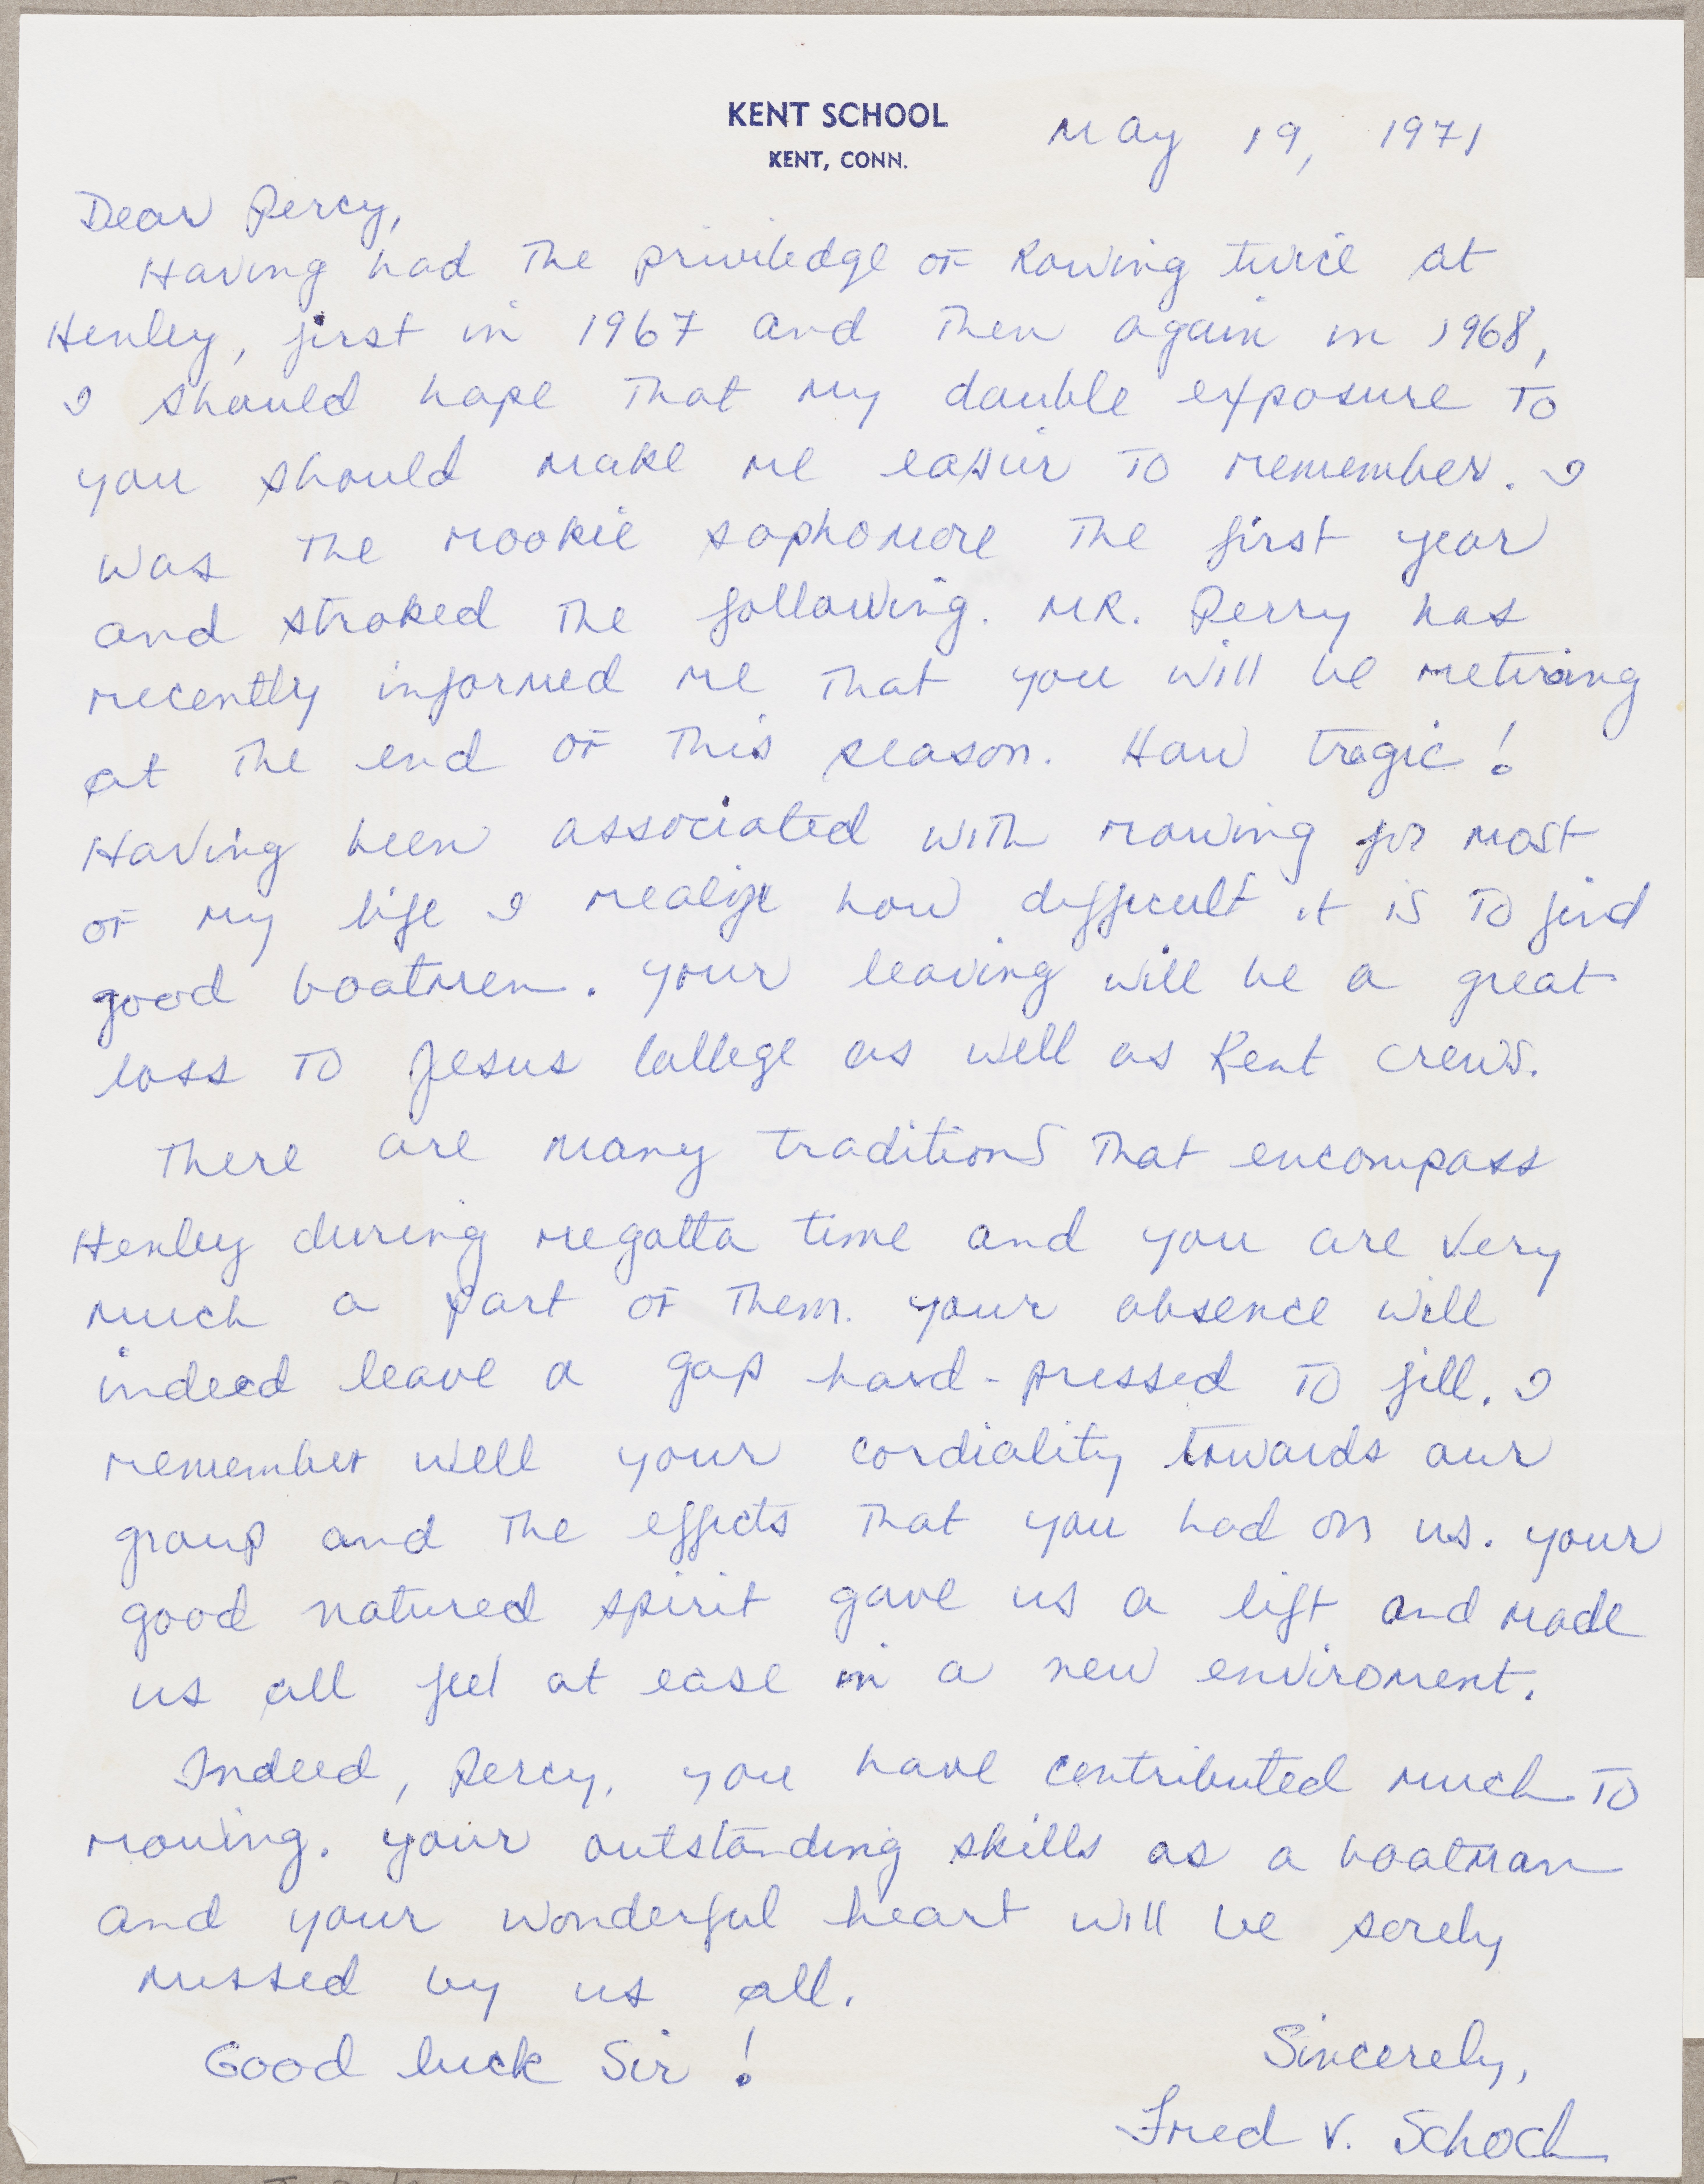 KENT SCHOOL
KENT, CONN.
May 19, 1971
Dear Percy,
Having had the priviledge of Rowing twice at
Henley, first in 1967 and then again in 1968,
I should hope that my double exposure to
you should make me easier to remember. I
was the rookie sophomore the first year
and stroked the following. MR. Perry has
recently informed me that you will be retiring
at the end of this season. How tragic!
Having been associated with rowing for most
of my life I realize how difficult it is to find
good boatmen. Your leaving will be a great
loss to Jesus College as well as Kent crews.
There are many traditions that encompass
Henley during regatta time and you are very
much a part of them. Your absence will
indeed leave a gap hard-pressed to fill. I
remember well your cordiality towards our
group and the effects that you had on us. Your
good natured spirit gave us a lift and made
us all feel at ease in a new enviroment.
Indeed, Percy, you have contributed much to
rowing. Your outstanding skills as a boatman
and your wonderful heart will be sorely
missed by us all.
Good luck Sir!
Sincerely,
Fred V. Schoch